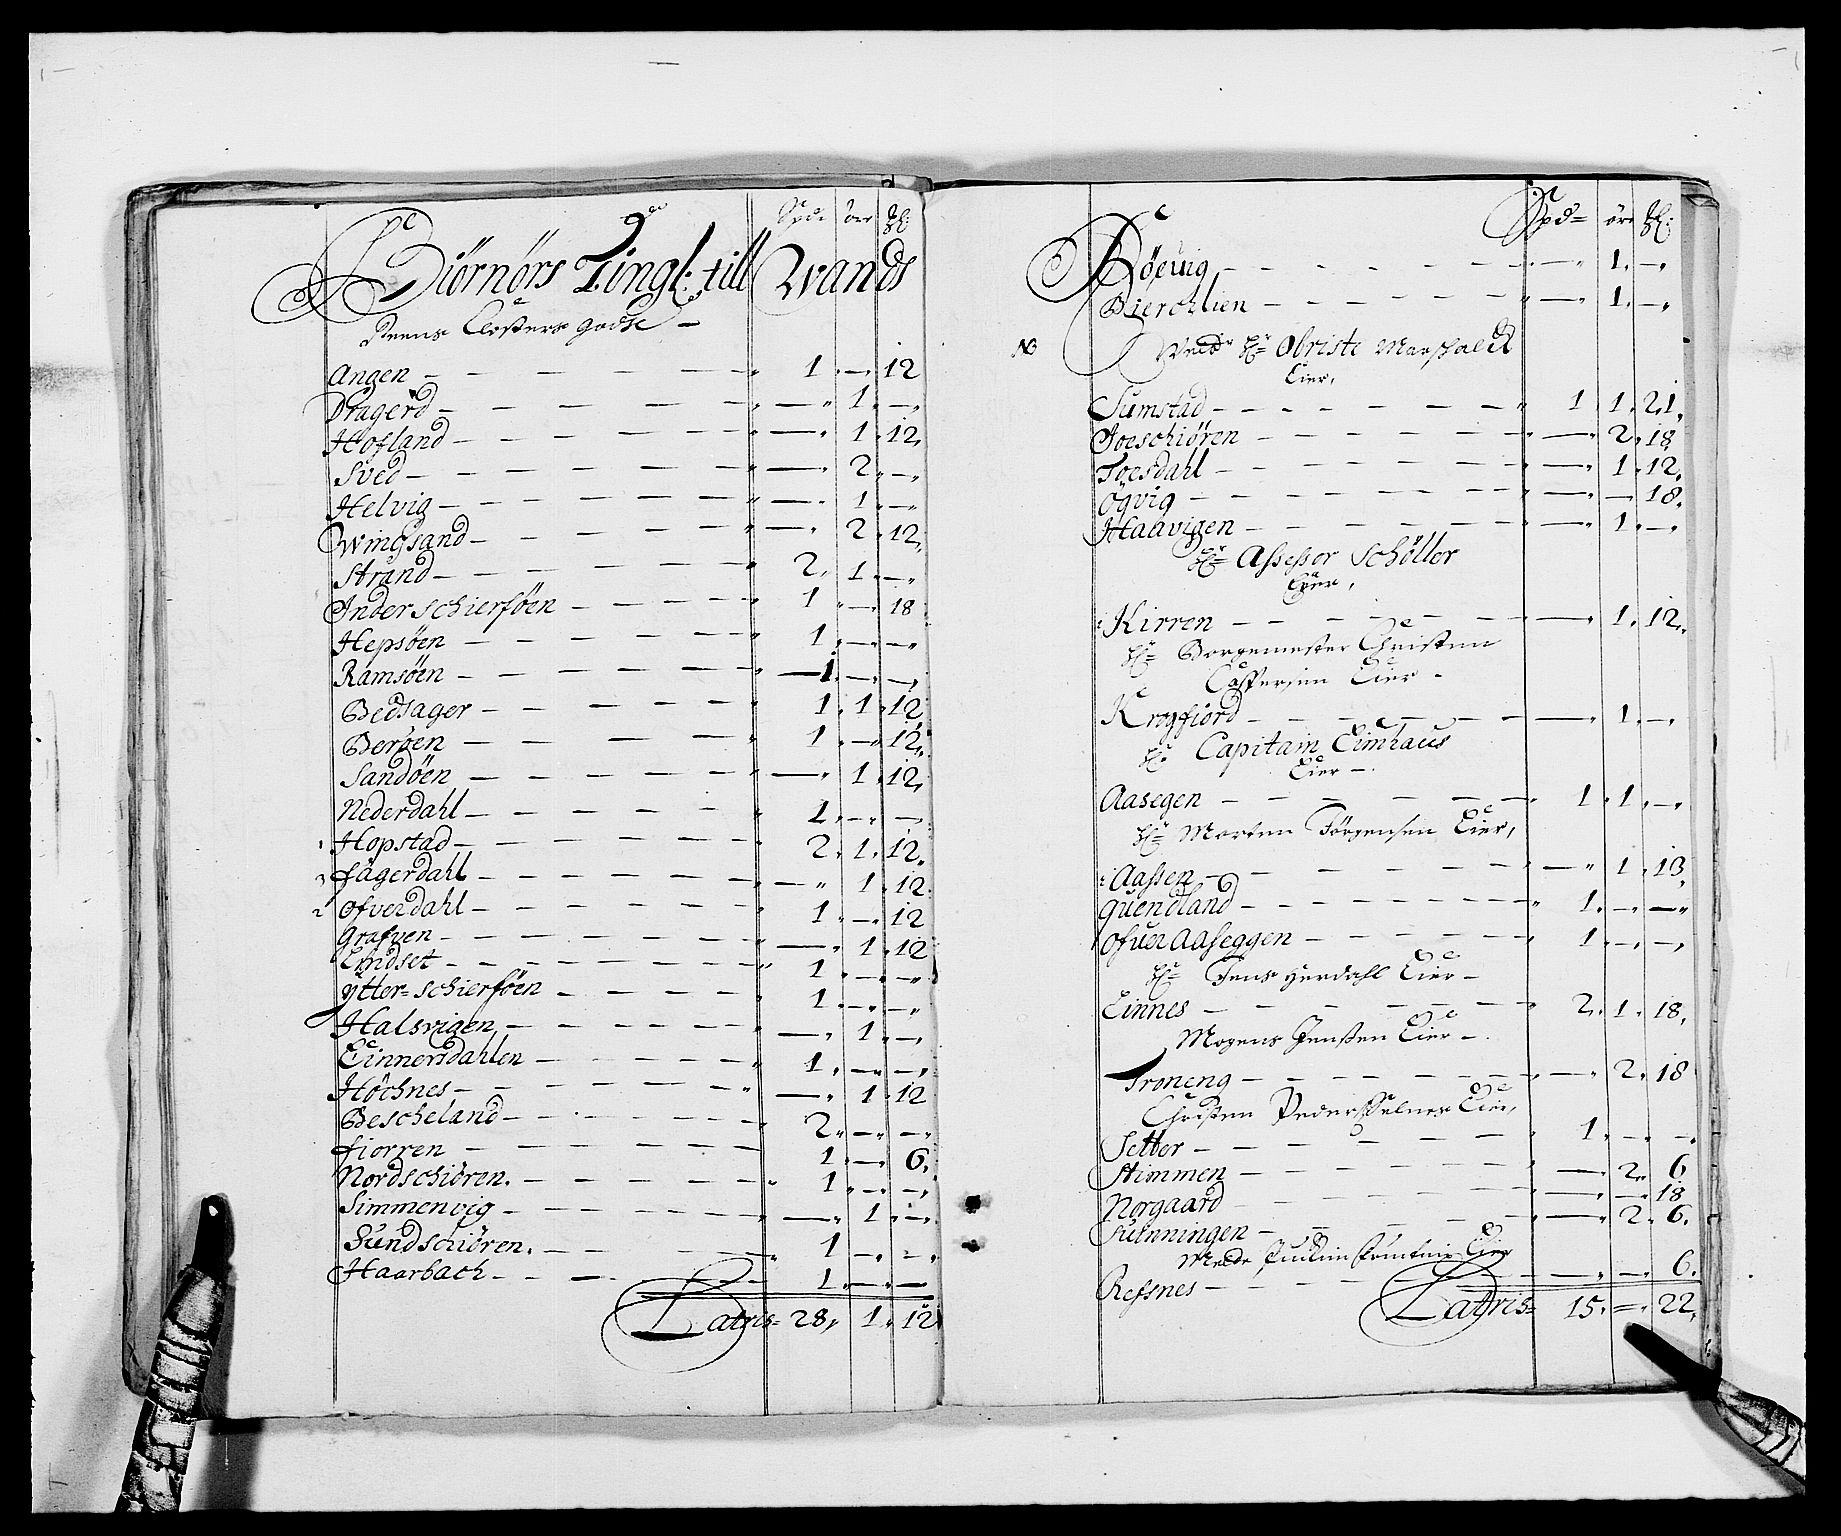 Spd: öre ₰:
Biörnörs Tingl: till Wands
Reens Closters godtz —
Angen — 1 „ — „ 12
Dragerd — „ 1 „ —
Hofland — „ 1 „ 12
Sved — „ 2 „ —
Helvig — „ 1 „ —
Wingsand — „ 2 „ 12
Strand — 2 „ 1 „ —
Inderschierföen — 1 „ — „ 18
Hepsöen — 1 „ — „ —
Ramsöen — 1 „ — „ —
Bedsager — 1 „ 1 „ 12
Beröen — 1 „ — „ 12
Sandöen — „ 1 „ 12
Nederdahl — 1 „ — „ —
1 Hopstad — 2 „ 1 „ 12
3 fagerdahl — „ 1 „ 12
2 ofverdahl — 1 „ — „ 12
Grafven — „ 1 „ 12
Lindset — 1 „ — „ —
ÿtter-schierföen — 1 „ — „ —
Halsvigen — „ 1 „ —
Einnersdahlen — 1 „ — „ —
Höchnes — „ 1 „ 12
Bescheland — 2 „ — „ —
fiorren — 1 „ — „ 6
Nordschiören — 1 „ — „ —
Simmenvig — „ 1 „ —
Sundschiören — 1 „ — „ —
Haarbach — 1 „ — „ —
Latris= 28 „ 1 „ 12
Spd= öre ₰:
Röevig — „ 1 „ —
Bierchlien — „ 1 „ —
NB Obriste Marschalck
Eier,
Sumstad — 1 1 „ 21
Joeschiören — „ 2 „ 18
Toesdahl — „ 1 „ 12
Ögvig — „ — „ 18
Haavigen — „ 1 „ —
Hr= Assessor Schöller
Eier,
Kirren — „ 1 „ 12
Hr= Borgemester Christen
Casspersen Eier —
Krogfiord — „ 1 „ —
Hr. Capitain Eimhaus
Eier —
Aasegen — 1 „ 1 „ —
Hr= Morten Jörgensen Eier,
Aassen — „ 1 „ 13
Quendland — 1 „ — „ —
Ofver Aaseggen — 1 „ — „ —
Hr= Jens Hverdahl Eier —
Einnes — 2 „ 1 „ 18
Mogens Jenssen Eier —
Troneng — „ 2 „ 18
Christen Peders Eier,
Setter — 1 „ — „ —
Stimmen — „ 2 „ 6
Norgaard — „ — „ 18
Suenningen — „ 2 „ 6
Eier
Refsnes — „ — „ 6
Latris= 15 „ = „ 22